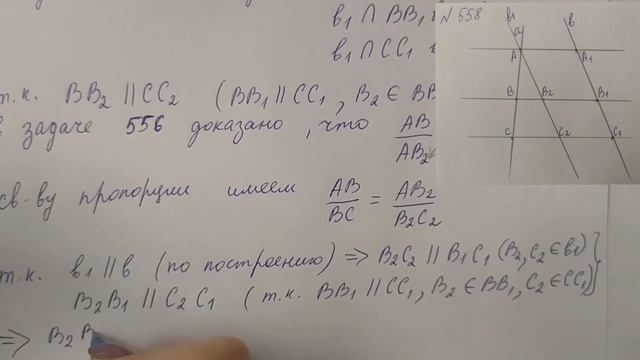 b₁ ∩ BB₁
b₁ ∩ CC₁
т.к. BB₂ || CC₂ (BB₁ || CC₁, B₂ ∈ BB
задаче 556 доказано, что AB/AB₂
св-ву пропорции имеем AB/BC = AB₂/B₂C₂
т.к. b₁ || b (по построению) => B₂C₂ || B₁C₁ (B₂, C₂ ∈ b₁)
B₂B₁ || C₂C₁ (т.к. BB₁ || CC₁, B₂ ∈ BB₁, C₂ ∈ CC₁)
=> B₂B
N 558
b₁ b
a
A A₁
B B₂ B₁
C C₂ C₁